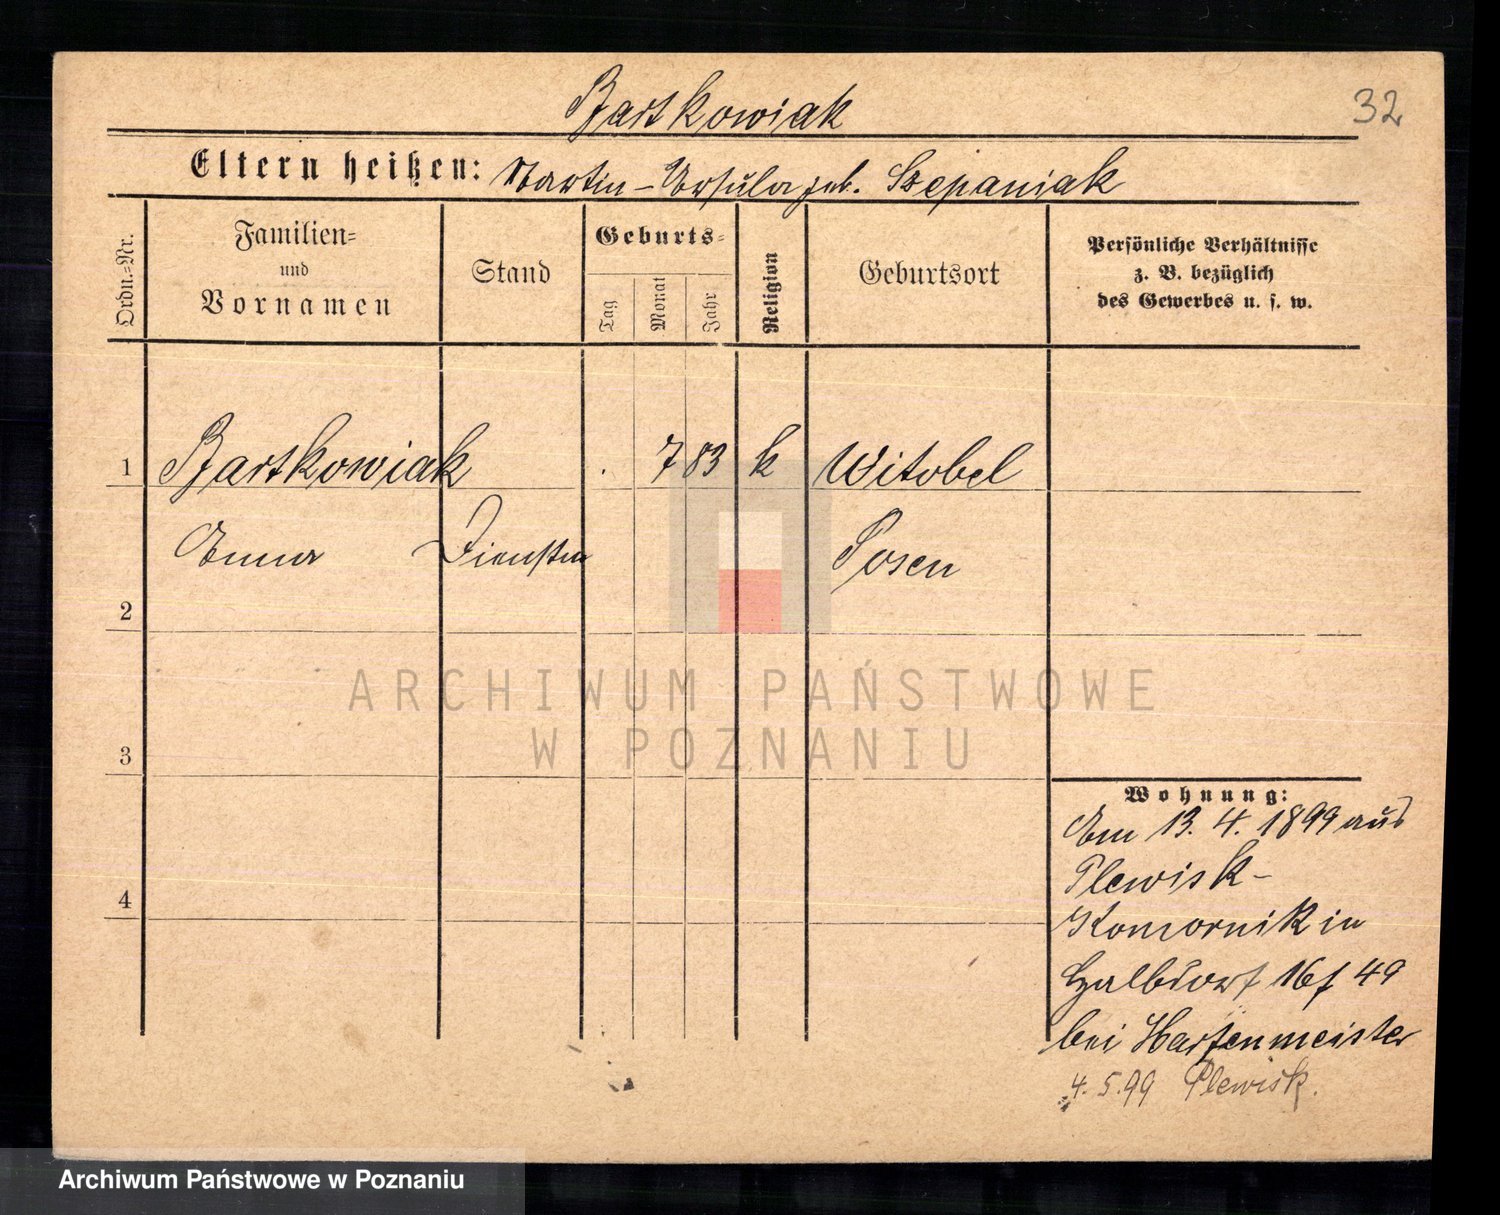 Bartkowiak
32
Eltern heißen: Martin - Ursula geb. Szepaniak
Ordn.-Nr.
Familien-
und
Vornamen
Stand
Geburts-
Tag
Monat
Jahr
Religion
Geburtsort
Persönliche Verhältnisse
z. B. bezüglich
des Gewerbes u. s. w.
1 Bartkowiak . 7 83 k Witobel
Anna Dienstm Posen
2
3
4
ARCHIWUM PAŃSTWOWE
W POZNANIU
Wohnung:
Am 13. 4. 1899 aus
Plewisk-
Komornik in
Halbdorf 16 f 49
bei Hartenmeister
4. 5. 99 Plewisk.
Archiwum Państwowe w Poznaniu